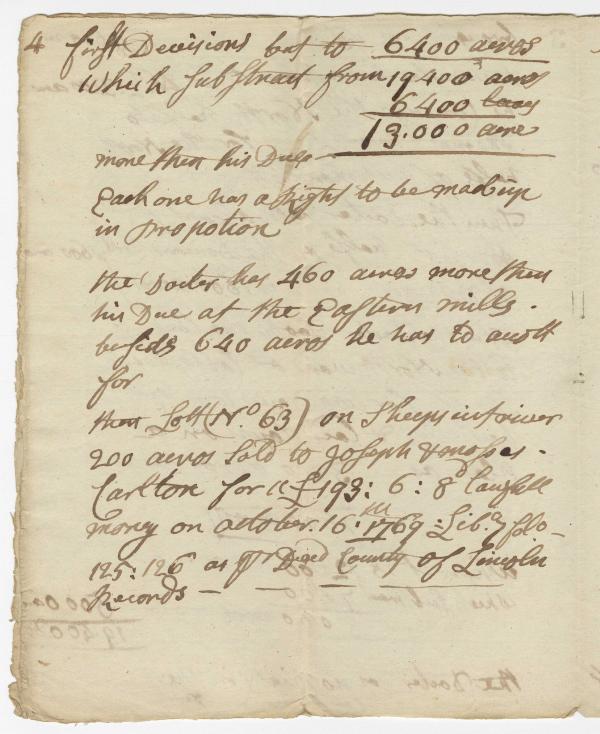 4 first Decisions but to 6400 acres
Which substract from 19400 acres
6400
13.000 acre
more then his Dues
Each one has a Right to be made up
in propotion
the Docter has 460 acres more then
his Due at the Eastern mills.
besids 640 acres he has to
for
Lott (No 63) on Sheepscutt river
200 acres Sold to Joseph & moses
Carlton for £193: 6: 8d
money on october. 16: th 1769: Lib. 7 folo
125: 126 as pr Deed County of Lincoln
Records